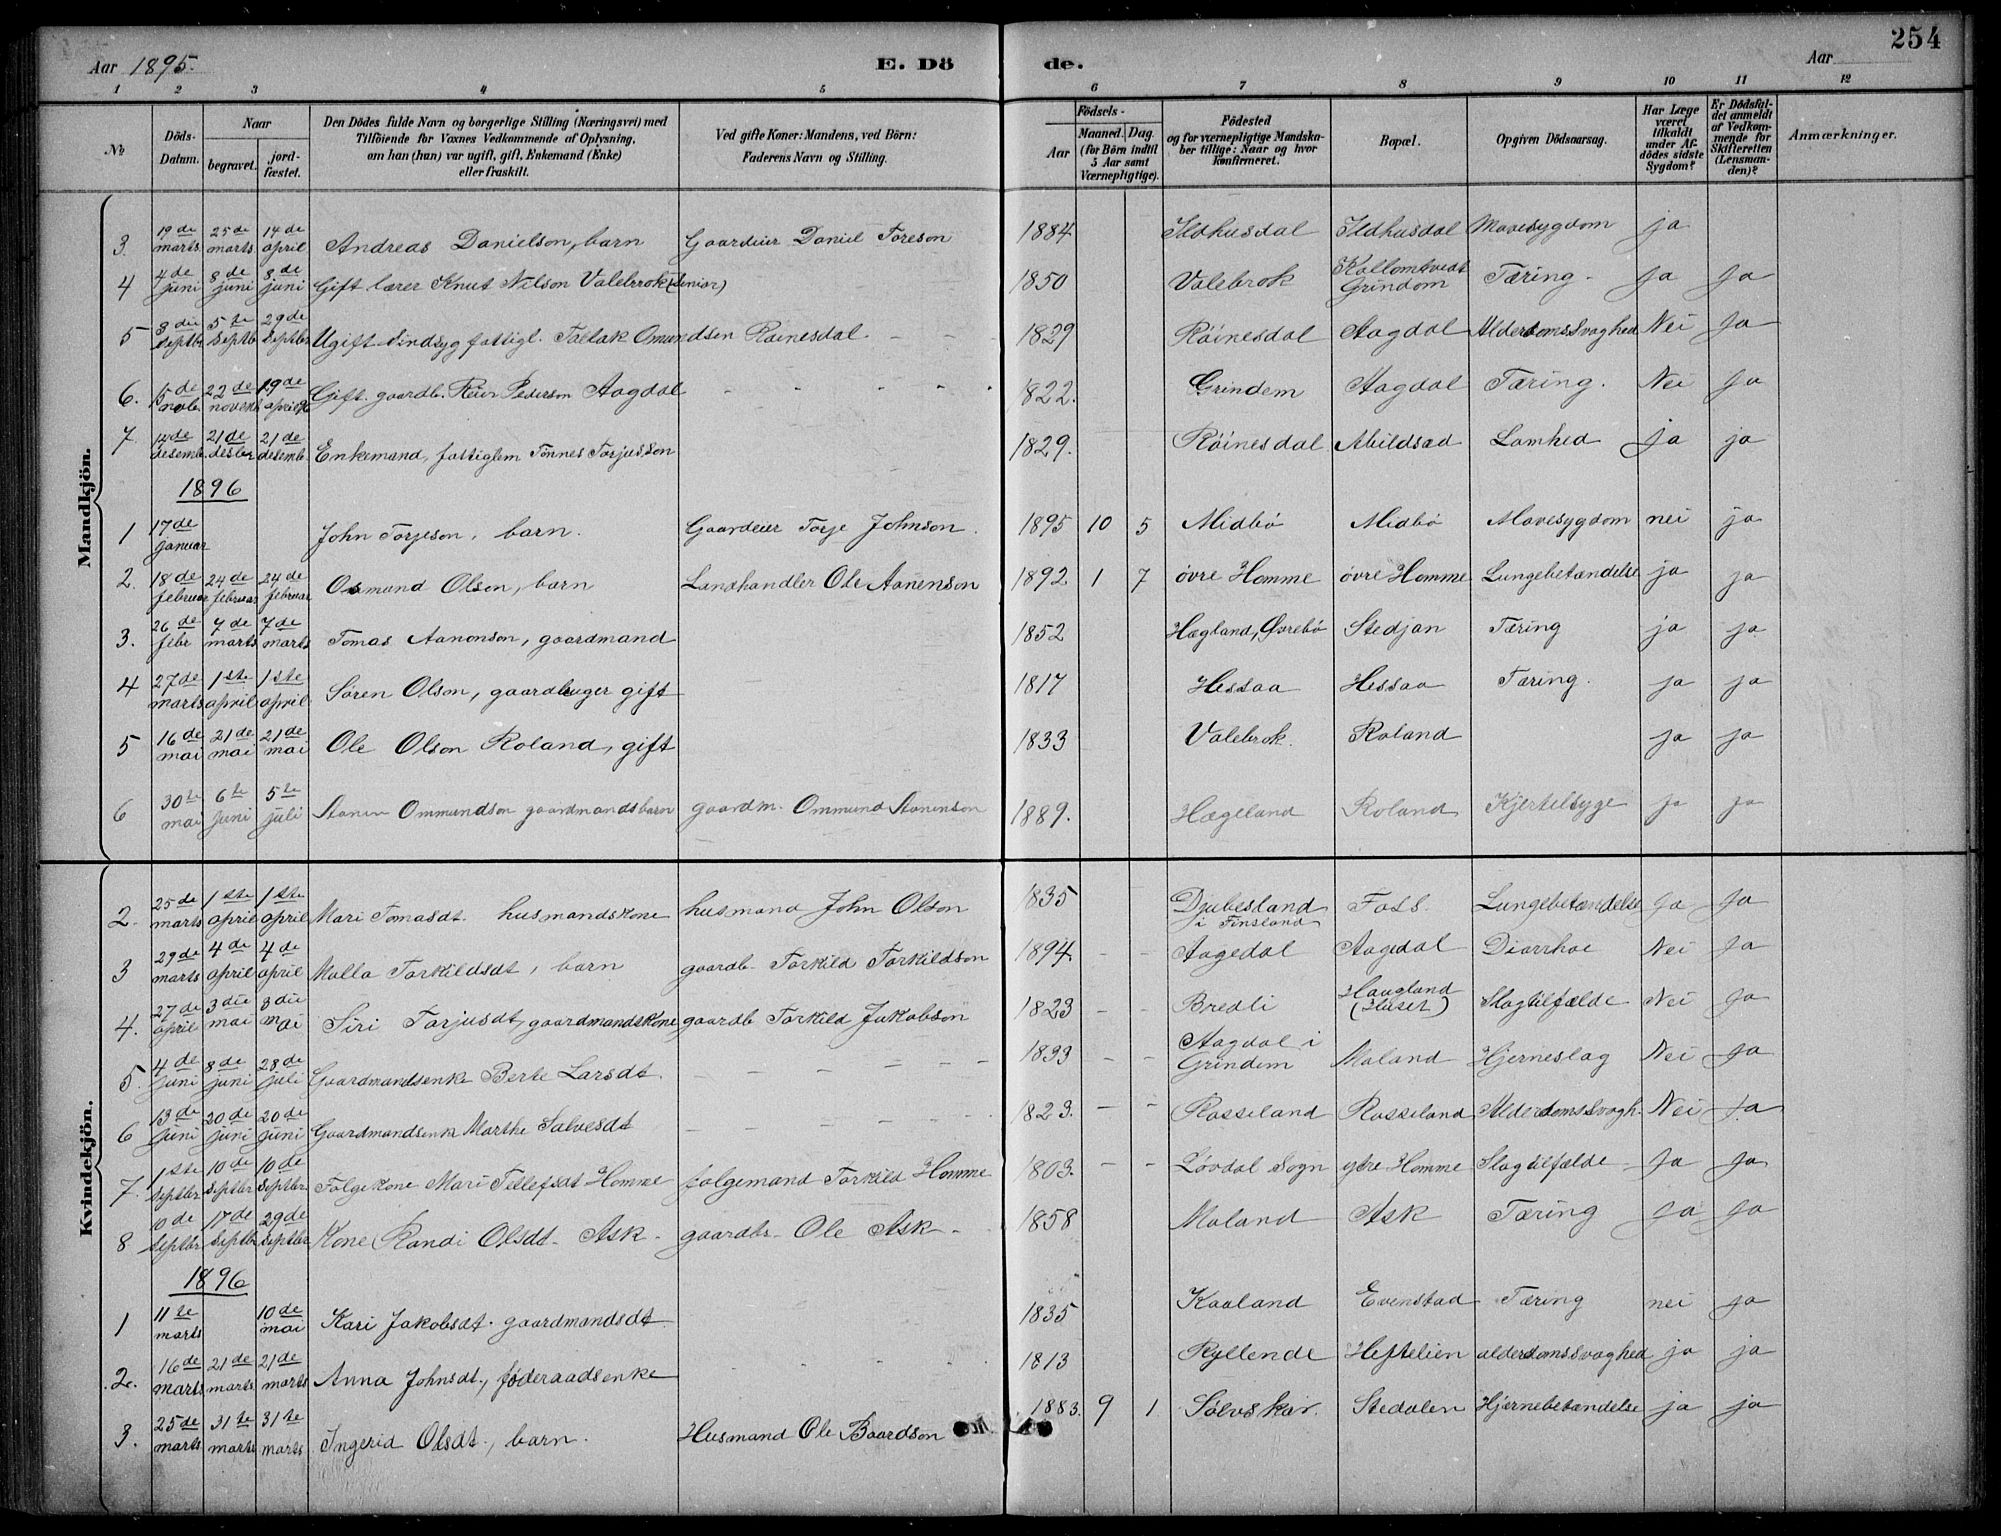 254
Aar 1895.
E. Döde.
Aar
1 2 3 4 5 6 7 8 9 10 11 12
No
Döds-Datum.
Naar
begravet.
jord-fæstet.
Den Dödes fulde Navn og borgerlige Stilling (Næringsvei) med
Tilföiende for Voxnes Vedkommende af Oplysning,
om han (hun) var ugift, gift, Enkemand (Enke)
eller fraskilt.
Ved gifte Koner: Mandens, ved Börn:
Faderens Navn og Stilling.
Födsels-
Aar
Maaned. Dag.
(for Börn indtil
5 Aar samt
Værnepligtige).
Födested
og for værnepligtige Mandska-
ber tillige: Naar og hvor
konfirmeret.
Bopæl.
Opgiven Dödsaarsag.
Har Læge
været
tilkaldt
under Af-
dödes sidste
Sygdom?
Er Dödsfal-
det anmeldt
af Vedkom-
mende for
Skifteretten
(Lensman-
den)?
Anmærkninger.
Mandkjön.
3. 19de marts 25de marts 14de april Andreas Danielson, barn Gaardeier Daniel Toreson 1884 Ildhusdal Ildhusdal Mavesygdom ja
4 4de juni 8de juni 8de juni Gift lærer Knut Nilson Valebrok (senior) 1850 Valebrok Kallomtvedt Grindom Tæring - Ja Ja
5 3die Septbr 5te Septb 29de Septbr Ugift Sindsyg fattigl. Tallak Omundsen Røinesdal - - - 1829 Røinesdal Aagdal AlderdomsSvaghed Nei Ja
6. 15de nvbr. 22de novemb 19de april 96 Gift gaardb. Reier Pederson Aagdal - - - - - 1822. Grindem Aagdal Tæring. Nei Ja
7. desemb. 21de desbr 21de desemb. Enkemand, fattiglem Tönnes Torjusson 1829. Røinesdal Abildsæd Lamhed ja ja
1896
1 17de Januar John Torjeson, barn. Gaardeier Torje Johnson. 1895 10 5 Midbö Midbö Mavesygdom nei ja
2. 18de februar 24de februar 24de februar Osmund Olson, barn Landhandler Ole Aanenson 1892 1 7 övre Homme övre Homme Lungebetændelse ja ja
3. 26de febr 7de marts 7de marts Tomas Aanonson, gaardmand 1852 Hægland, Øvrebö Stedjan Tæring ja ja
4 27de marts 1ste april 1ste april Sören Olson, gaardbruger gift 1817 Hessaa Hessaa Tæring. ja ja
5 16de mai 21de mai 21de mai Ole Olson Roland, gift 1833 Valebrok. Roland ja ja
6 30te mai 6te juni 5te juli Aanen Ommundson gaardmandsbarn gaardm. Ommund Aanenson 1889. Hægeland Roland Kjertelsyge ja ja
Kvindekjön.
2. 25de marts 1ste april 1ste april Mari Tomasdt. husmandskone husmand John Olson 1835 Djubesland i Finsland Foss. Lungebetændelse Ja Ja
3 29de marts 4de april 4de april Malla Torkildsdt, barn gaardb. Torkild Torkildson 1894. - - Aagedal Aagedal Diarrhoe Nei Ja
4. 27de april 3die mai 3die mai Siri Torjusdt, gaardmandskone gaardb Torkild Jakobson 1823 - - Bredli Haugland (Huset) Slagtilfælde Nei Ja
5. 4de juni 8de juni 28de juli Gaardmandsenke Berte Larsdt. - - - - - - 1833 - - Aagdal i Grindem Moland Hjerneslag Nei Ja
6 13de juni 20de juni 20de juni Gaardmandsenk Marthe Salvesdt - - - - - - 1823. - - Rosseland Rosseland AlderdomsSvagh. Nei Ja
7. 1ste Septbr 10de Septbr 10de Septbr Folgekone Mari Tellefsdt Homme folgemand Torkild Homme 1803. - - Løvdal Sogn ytre Homme Slagtilfælde - Ja Ja
8 10de Septbr 17de Septbr 29de Septbr Kone Randi Olsdt - Ask - gaardbr - Ole Ask - 1858 Moland Ask Tæring Ja Ja
1896
1 11te marts 10de mai Kari Jakobsdt. gaardmandsdt. 1835 Kaaland Evenstad Tæring nei ja
2. 16de marts 21de marts 21de marts Anna Johnsdt., föderaadsenke - - - - 1813 Ryllende Heftelien alderdomssvaghed ja ja
3. 25de marts 31te marts 31te marts Ingerid Olsdt., barn. Husmand Ole Baardson 1883. 9 1 Sölvskar. Stedalen Hjernebetændelse ja ja